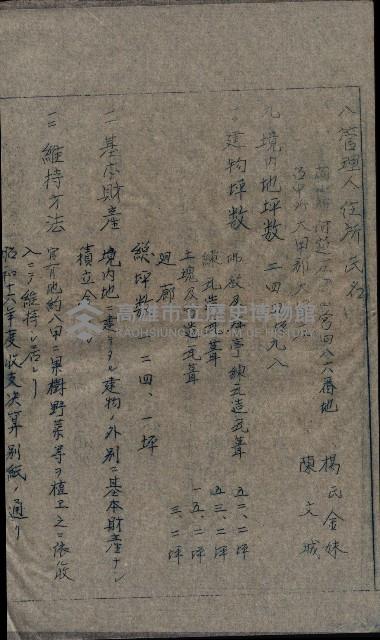 八、管理人住所氏名
岡山郡 八六番地 楊氏金妹
台中州大甲郡大 陳文城
九、境内地坪数 二四 九八
一〇、建物坪数
及 亭 煉瓦造瓦葺 五二、二坪
煉瓦造瓦葺 五三、二坪
土塊及 造瓦葺 一五、二坪
廻廊 三、二坪
総坪数 一二四、一坪
一一、基本財産 境内地 建物ノ外別ニ基本財産ナシ
積立金ナシ
一二、維持方法 官有地約八甲ニ果樹野菜等ヲ植エ之ニ依ル收
入ニテ維持シ居レリ
昭和十六年度收支決算別紙ノ通リ
高雄市立歷史博物館
KAOHSIUNG MUSEUM OF HISTORY